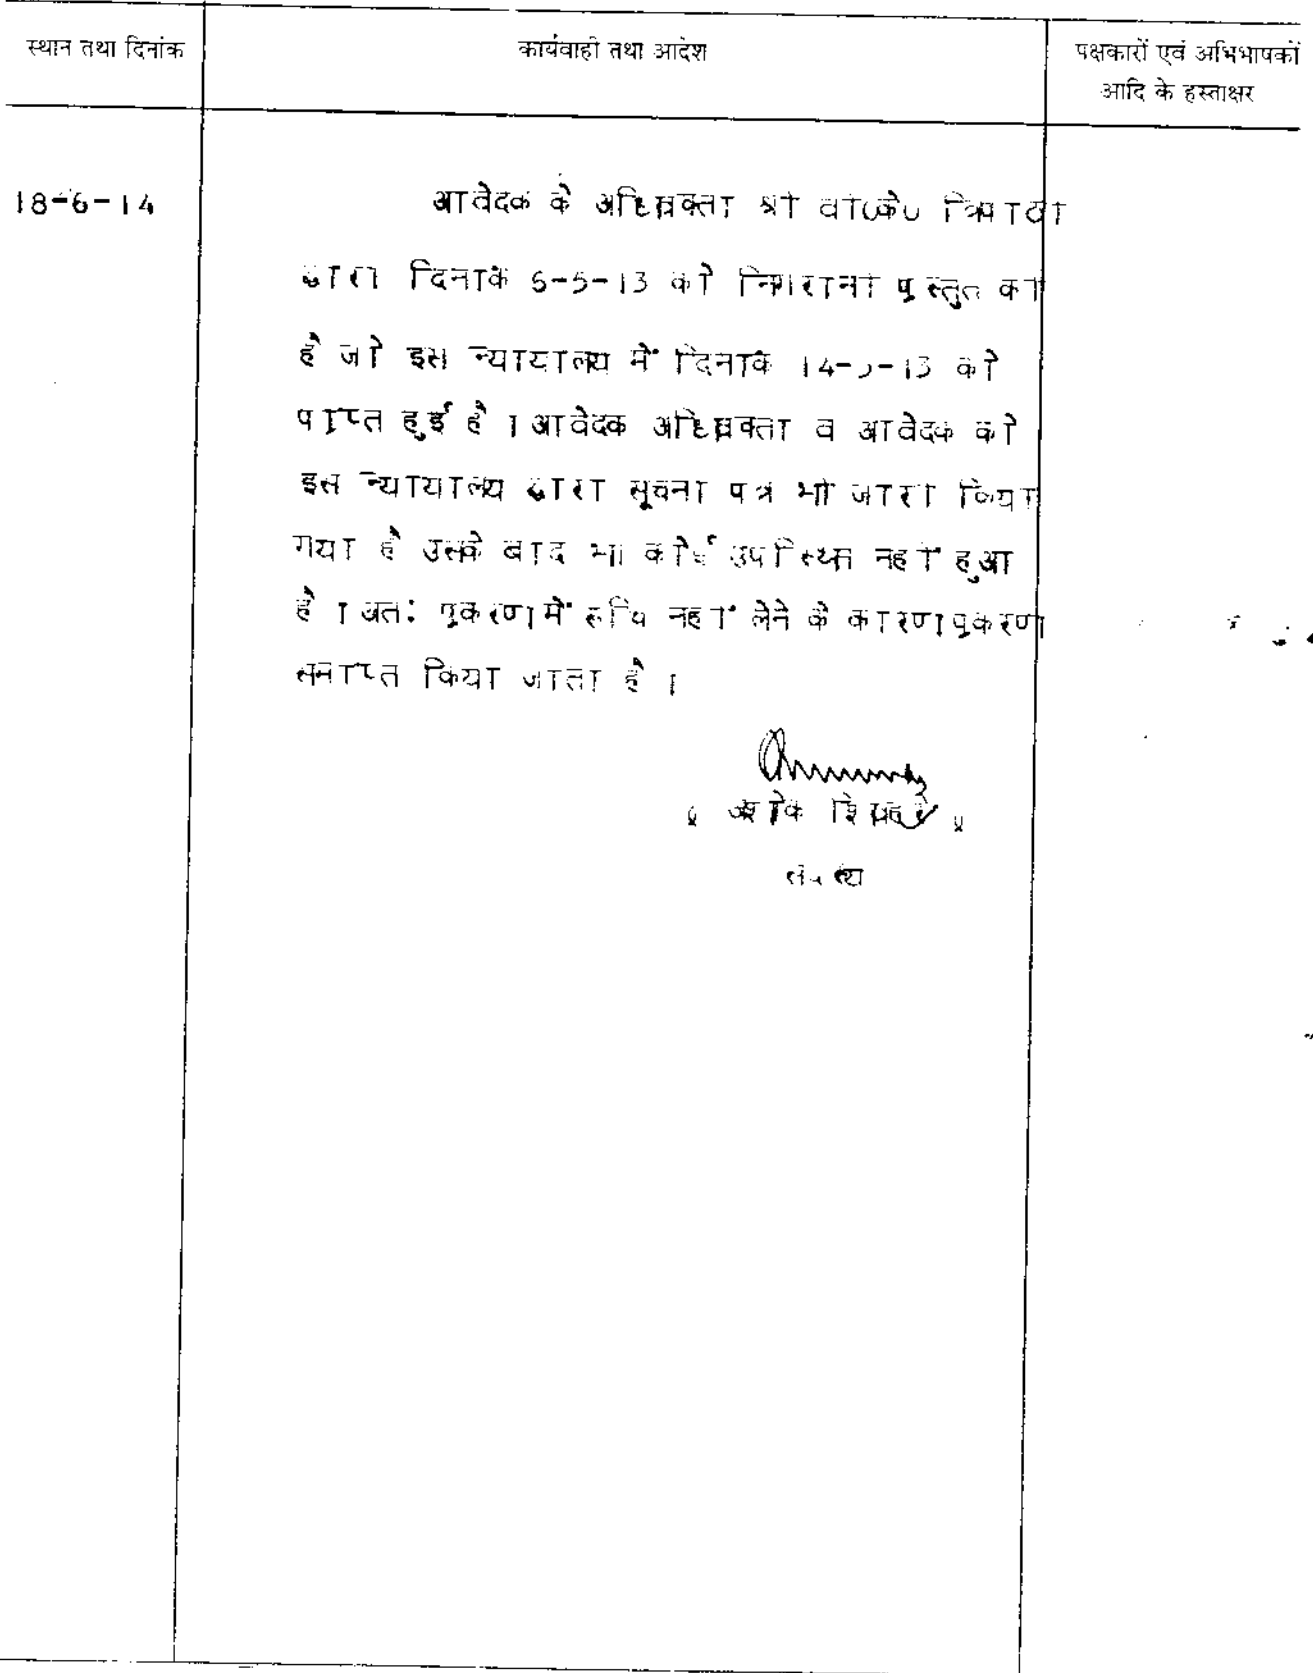 स्थान तथा दिनांक
कार्यवाही तथा आदेश
पक्षकारों एवं अभिभाषकों
आदि के हस्ताक्षर
18-6-14
आवेदक के अधिवक्ता श्री वी०के० त्रिपाठी
द्वारा दिनांक 6-5-13 को निगरानी प्रस्तुत की
है जो इस न्यायालय में दिनांक 14-5-13 को
प्राप्त हुई है । आवेदक अधिवक्ता व आवेदक को
इस न्यायालय द्वारा सूचना पत्र भी जारी किया
गया है उसके बाद भी कोई उपस्थित नहीं हुआ
है । अतः प्रकरण में रूचि नहीं लेने के कारण प्रकरण
समाप्त किया जाता है ।
अशोक शिवहरे
सदस्य